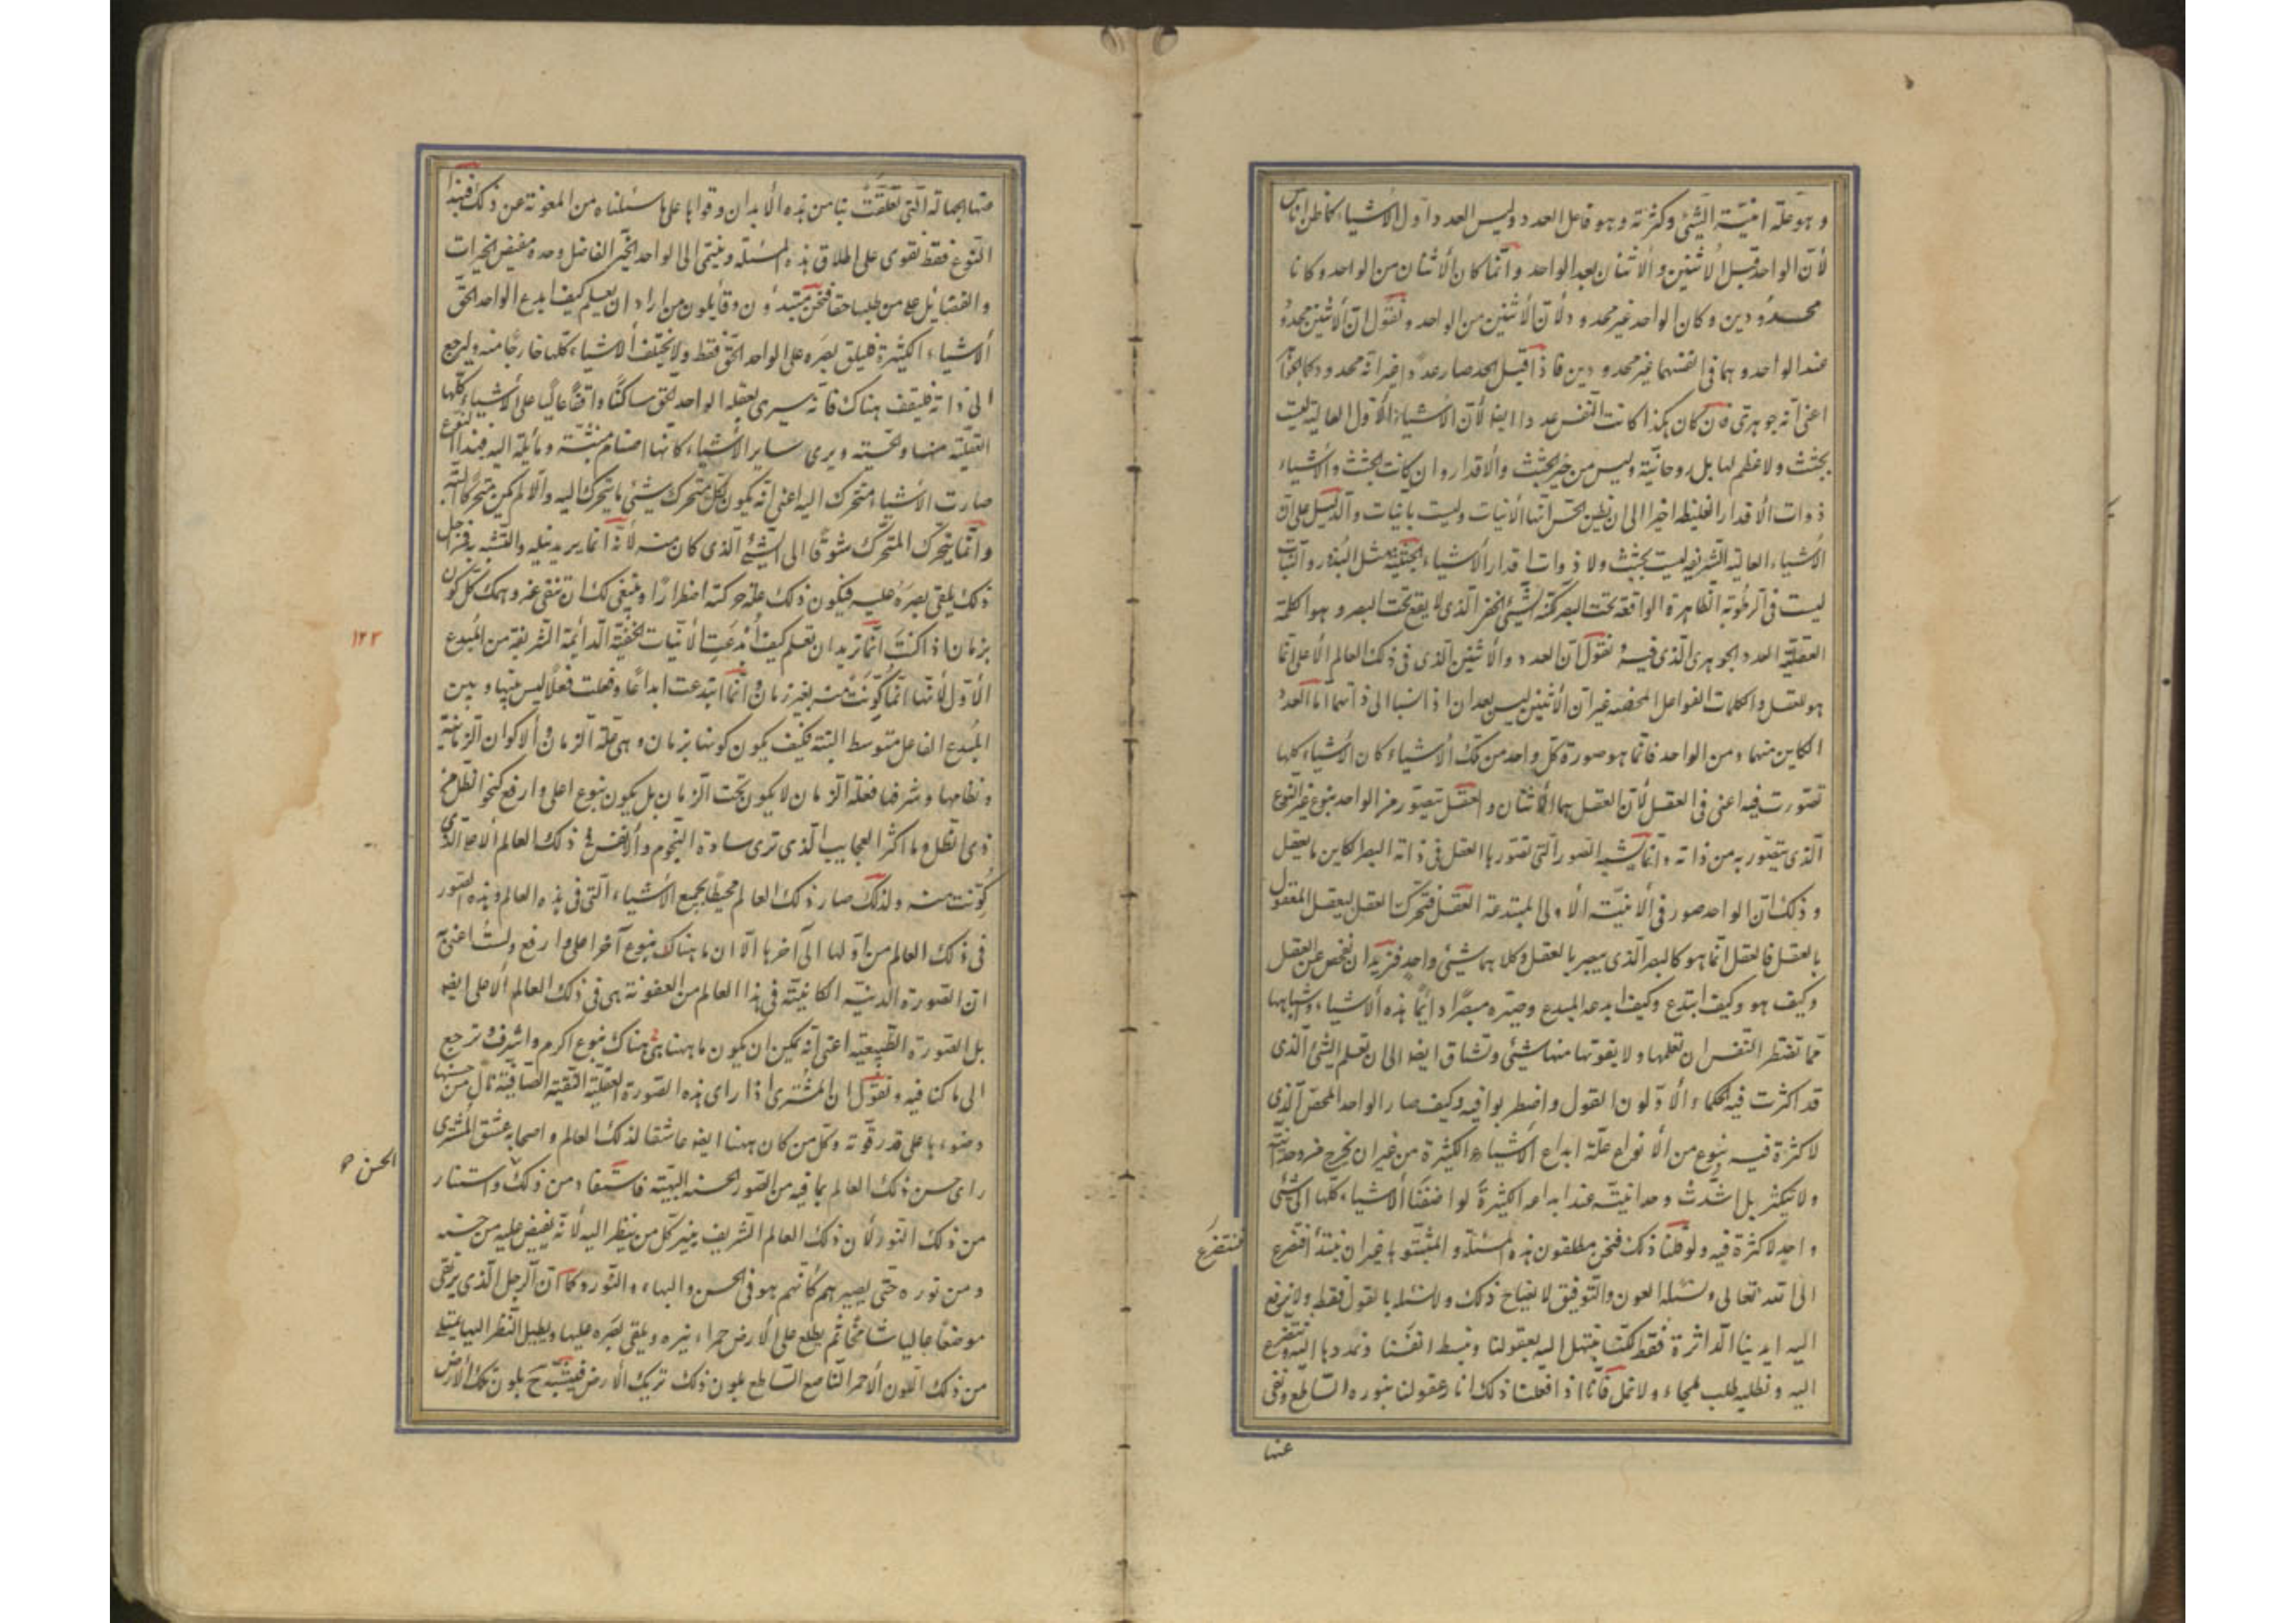 و هو علّة انيّة الشّئ وكثرته و هو فاعل العدد وليس العدد داول الأشياء كما ظن اناس
لأنّ الواحد قبل الأثنين والأثنان بعد الواحد وانّما كان الأثنان من الواحد وكانا
محدودين وكان الواحد غير محدود ولأنّ الأثنين من الواحد ونقول انّ الأثنين محدود
عند الواحد وهما فى انفسهما غير محدودين فاذا قبل الحد صار عددا غير انّه محدود
اعنى انّه جوهرى فان كان هكذا كانت النفس عددا ايضا لأنّ الأشياء الأول العالية ليست
بجثث ولا عظم لها بل روحانيّة وليس من خير الجثث والأقدار وان كانت الجثث والأشياء
ذوات الأقدار الغليظه اخيرا الى ان يظن الحس انّها الأنيات وليست بأنيات والدّليل على انّ
الأشياء العالية الشريفه ليست بجثث ولا ذوات اقدار الأشياء الحقيّة مثل البذور والنبات
ليست فى الرطوبة الظاهرة الواقعة تحت البصر لكنّه الشّئ الخفى الّذى لا يقع تحت البصر و هو الكلمة
العقليّة العدد الجوهرى الّذى فيه ونقول انّ العدد والأثنين الّذى فى ذلك العالم الأعلى انّما
هو العقل والكلمات الفواعل المحضه غير انّ الأثنين ليس بعدان اذا نسبا الى ذاتهما امّا العدد
الكاين منهما ومن الواحد فانّما هو صورة كلّ واحد من تلك الأشياء كان الأشياء كلها
تصوّرت فيه اعنى فى العقل لأنّ العقل هما الأثنان والعقل يتصوّر من الواحد بنوع غير النوع
الّذى يتصوّر به من ذاته وانّما يشبه الصّور الّتى تصوّرها العقل فى ذاته البصر الكاين ما يعقل
و ذلك انّ الواحد صور فى الأنيّة الأولى المبتدعة العقل فتحرّك العقل ليعقل المعقول
بالعقل فالعقل انّما هو كالبصر الّذى يبصر بالعقل وكلاهما شئ واحد فنريد ان نفحص عن العقل
وكيف هو وكيف ابتدع وكيف ابدعه المبدع وصيّره مبصرا دائما هذه الأشياء واشباهها
ممّا تضطر النّفس ان تعلمها ولا يفوتها منها شئ وتشتاق ايضا الى ان تعلم الشّئ الّذى
قد اكثرت فيه الحكماء الأوّلون القول واضطربوا فيه وكيف صار الواحد المحض الّذى
لا كثرة فيه بنوع من الأنواع علّة ابداع الأشياء الكثيرة من غير ان يخرج من وحدانيّته
ولا يتكثر بل اشتدّت وحدانيّته عند ابداعه الكثيرة لو اضفنا الأشياء كلّها الى شئ
واحد لا كثرة فيه ولو قلنا ذلك فنحن مطلقون هذه المسئلة والمثبتوها غير ان نبتدأ فنتضرع
فنتضرع
الى الله تعالى ونسئله العون والتّوفيق لايضاح ذلك ولا نسئله بالقول فقط ولا نرفع
اليه ايدينا الدّاثرة فقط لكنّا نبتهل اليه بعقولنا ونبسط انفسنا ونمدّدها اليه ونتضرع
اليه ونطلبه طلب لجاء ولا نمل فانّا اذا فعلنا ذلك انار عقولنا بنوره السّاطع ونفى
عنها
عنها الجهالة الّتى تعلّقت بنا من هذه الأبدان وقوّانا على ما سئلناه من المعونة عن ذلك فبهذا
النّوع فقط نقوى على اطلاق هذه المسئلة وننتهى الى الواحد الخيّر الفاضل وحده مفيض الخيرات
والفضائل على من طلبها حقا فنحن مبتدؤن وقائلون من اراد ان يعلم كيف ابدع الواحد الحقّ
الأشياء الكثيرة فليلق بصره على الواحد الحقّ فقط وليخلّف الأشياء كلّها خارجا منه وليرجع
الى ذاته فليقف هناك فانّه سيرى بعقله الواحد الحقّ ساكنًا واقفًا عاليًا على الأشياء كلّها
العقليّة منها والحسّيّة ويرى ساير الأشياء كانّها اصنام منبثّة ومائلة اليه فبهذا النوع
صارت الأشياء تتحرك اليه اعنى انّه يكون لكلّ متحرّك شئ ما يتحرّك اليه والّا لم يكن متحرّكا البتّة
وانّما يتحرّك المتحرّك شوقًا الى الشّئ الّذى كان منه لأنّه انّما يريد نيله والتشبّه به فمن اجل
ذلك يلقى بصره عليه فيكون ذلك علّة حركته اضطرارًا وينبغى لك ان تنفى عن وهمك كل كون
بزمان اذا كنت انّما تريد ان تعلم كيف اُبدعت الأنّيات الحقيّة الدائمة الشريفة من المبدع
١٢٢
الأوّل لأنّها انّما كوّنت منه بغير زمان وانّما ابتدعت ابداعًا وفعلت فعلًا ليس بينها وبين
المبدع الفاعل متوسط البتة فكيف يكون كونها بزمان وهى علّة الزمان والأكوان الزمانيّة
ونظامها وشرفها فعلّة الزمان لا يكون تحت الزمان بل يكون بنوع اعلى وارفع كنحو الظّل من
ذى الظّل وما اكثر العجايب الّذى ترى سادة النّجوم والأنفس فى ذلك العالم الأعلى الّذى
كُوّنت منه ولذلك صار ذلك العالم محيطًا بجميع الأشياء الّتى فى هذه العالم وهذه الصّور
فى ذلك العالم من اوّلها الى آخرها الّا ان ما هناك بنوع آخر اعلى وارفع ولست اعنى به
انّ الصّورة الدنيّة الكائنة فى هذا العالم من العفونة هى فى ذلك العالم الأعلى ايضا
بل الصّورة الطّبيعيّة اعنى انّه يمكن ان يكون ما ههنا هى هناك بنوع اكرم واشرف ونرجع
الى ما كنا فيه ونقول انّ المشترى اذا راى هذه الصّورة العقليّة النّقيّة الصّافية نال من حسنها
وضوءها على قدر قوّته وكلّ من كان ههنا ايضا عاشقا لذلك العالم واصحابه عشق المشترى
راى حسن ذلك العالم بما فيه من الصّور الحسنه البهيّة فاستفاد من ذلك واستنار
الحسن
من ذلك النّور لأنّ ذلك العالم الشّريف ينير كلّ من ينظر اليه لأنّه يفيض عليه من حسنه
ومن نوره حتّى يصيرهم كأنّهم هو فى الحسن والبهاء والنّور وكما انّ الرّجل الّذى يرتقى
موضعًا عاليا شامخًا ثم يطلع على الأرض حمراء نيره ويلقى بصره عليها ويطيل النّظر اليها يمتلى
من ذلك اللّون الأحمر النّاصع السّاطع بلون ذلك تريك الأرض فيتشبّه بلون تلك الأرض